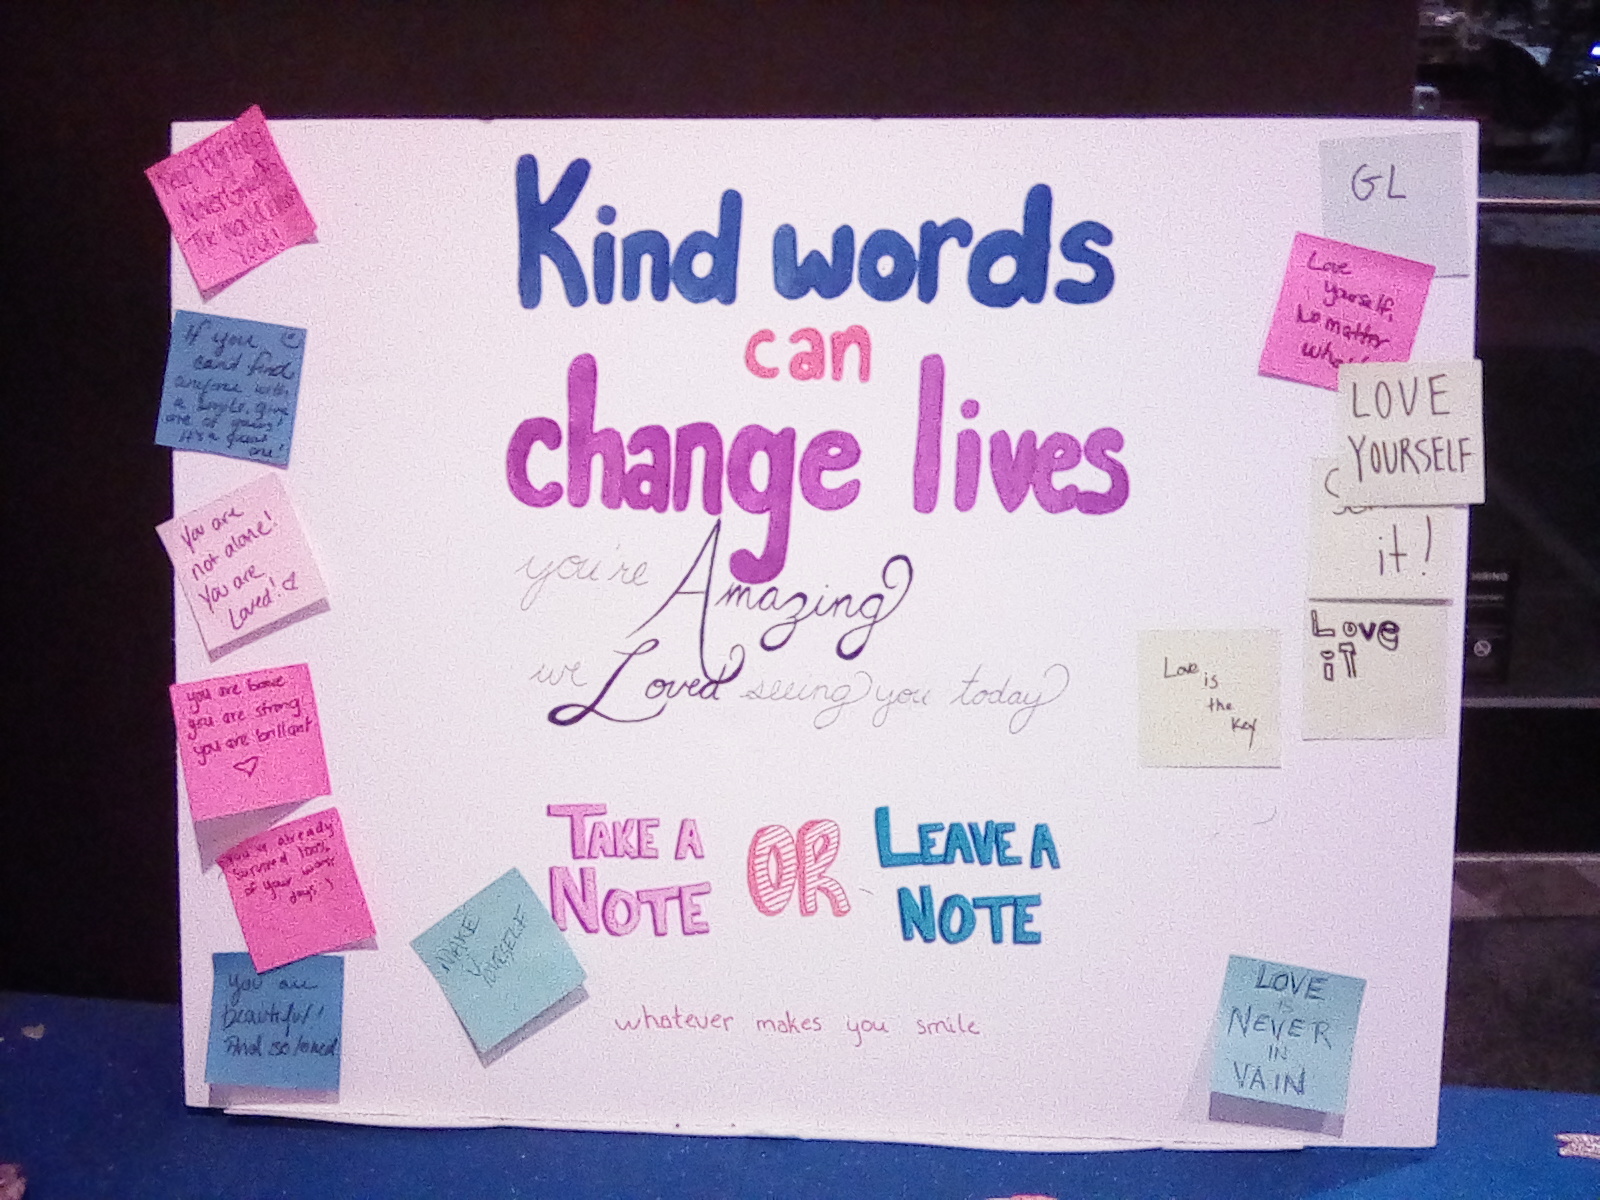 Kind words
can
change lives
you're Amazing
we Loved seeing you today
TAKE A
NOTE
OR
LEAVE A
NOTE
whatever makes you smile
Never
The World
You!
If you
can't find
anyone with
a smile, give
one of yours!
it's a
one!
You are
not alone!
You are
Loved!
you are brave
you are strong
you are brillant
already
survived 100%
of your worst
days :)
You are
beautiful!
And so loved
MAKE
YOURSELF
GL
Love
yourself,
no matter
LOVE
YOURSELF
it!
Love
iT
Love
is
the
key
LOVE
IS
NEVER
IN
VAIN